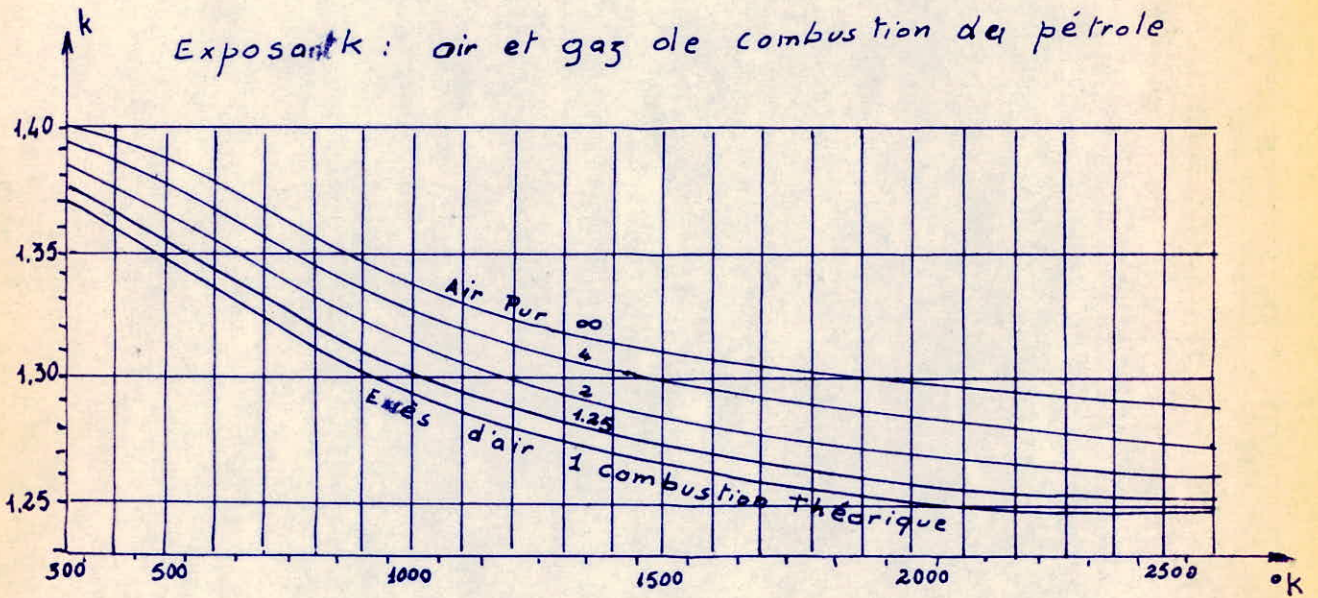 k
Exposant k : air et gaz de combustion du pétrole
1,40
1,35
1,30
1,25
Air Pur ∞
4
2
1.25
Exès d'air 1 Combustion Théorique
300 500 1000 1500 2000 2500
°K